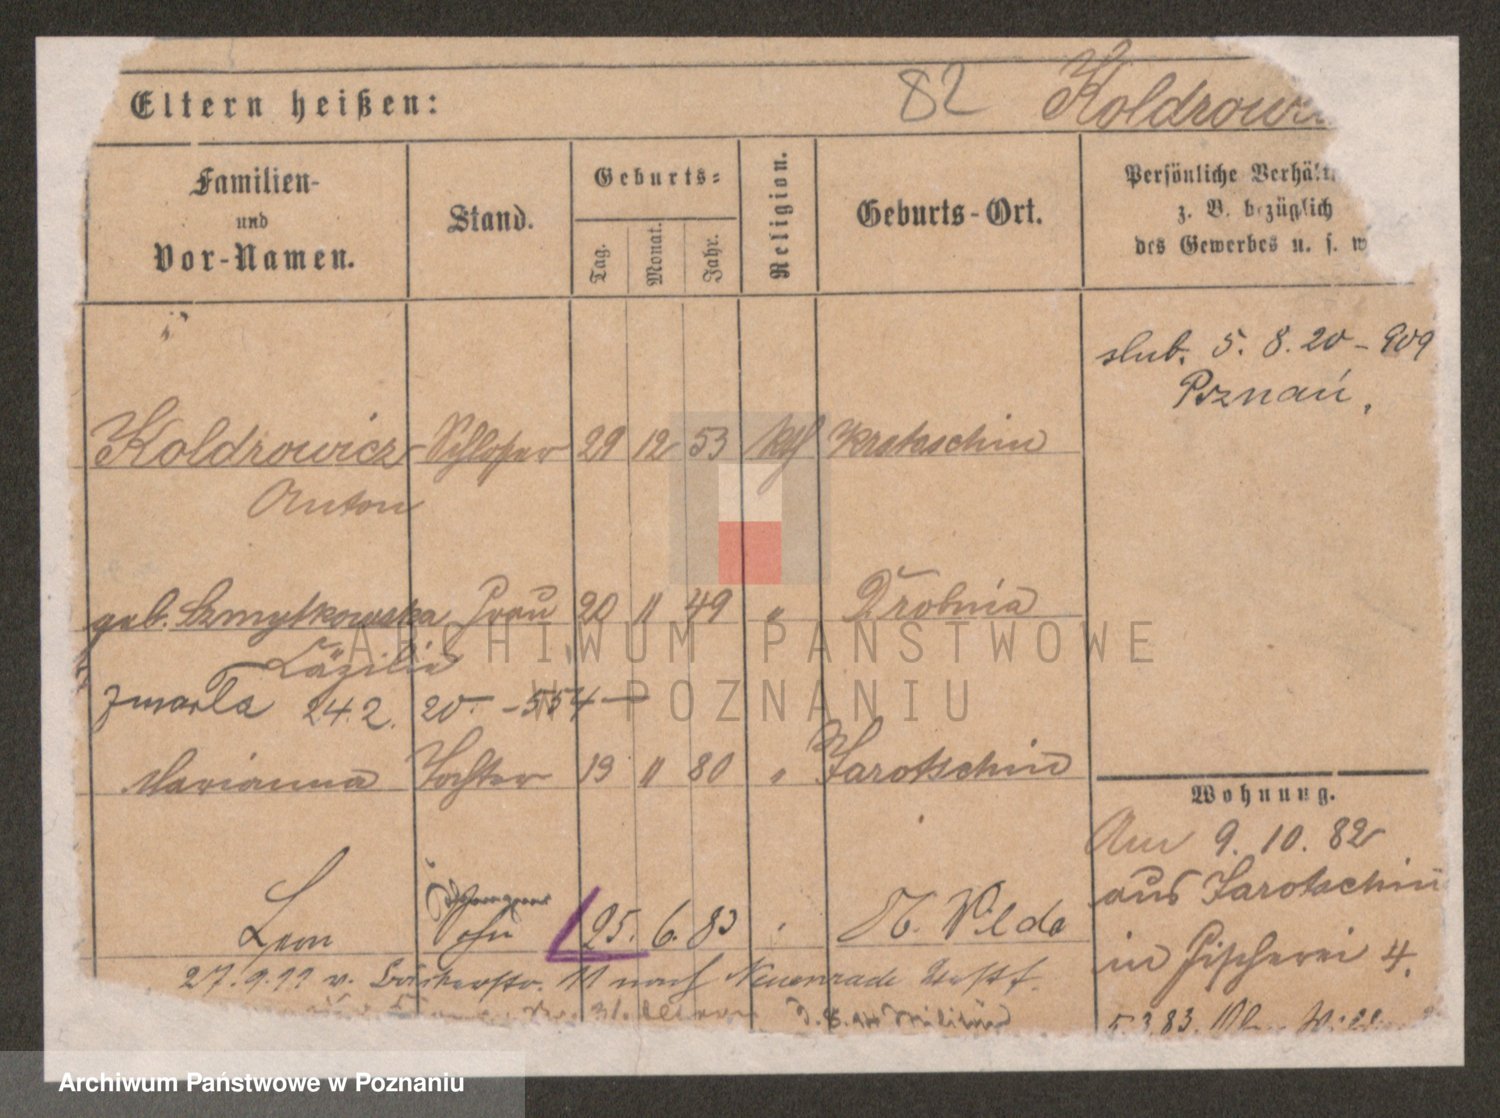 Eltern heißen:
82 Koldrowi
Familien-
und
Vor-Namen.
Stand.
Geburts-
Tag.
Monat.
Jahr.
Religion.
Geburts-Ort.
Persönliche Verhält
z. B. bezüglich
des Gewerbes u. s. w
slub. 5. 8. 20 - 909
Poznań,
Koldrowicz Schlosser 29 12 53 kth Krotoschin
Anton
geb. Szmytkowska Frau 20 11 49 " Drobnia
Cäzilie
zmarła 24.2. 20. - 554 -
Marianna Tochter 19 11 80 " Jarotschin
Wohnung.
Am 9. 10. 82
aus Jarotschin
in Fischerei 4.
5.3.83.
Leon Sohn 25. 6. 83 " N. Wilda
27.9.99 v. Bäckerstr. 11 nach Neuenrade Westf.
z. Militär
ARCHIWUM PAŃSTWOWE
W POZNANIU
Archiwum Państwowe w Poznaniu